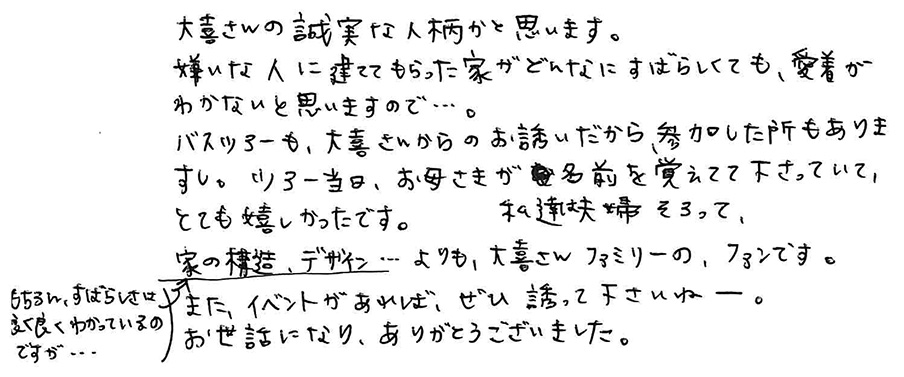 大喜さんの誠実な人柄かと思います。
嫌いな人に建ててもらった家がどんなにすばらしくても、愛着が
わかないと思いますので…。
バスツアーも、大喜さんからのお誘いだから、参加した所もありま
すし。ツアー当日、お母さまが名前を覚えてて下さっていて、
とても嬉しかったです。 私達夫婦そろって、
家の構造、デザイン…よりも、大喜さんファミリーの、ファンです。
もちろん、すばらしさは
良くわかっているの
ですが…
また、イベントがあれば、ぜひ誘って下さいねー。
お世話になり、ありがとうございました。